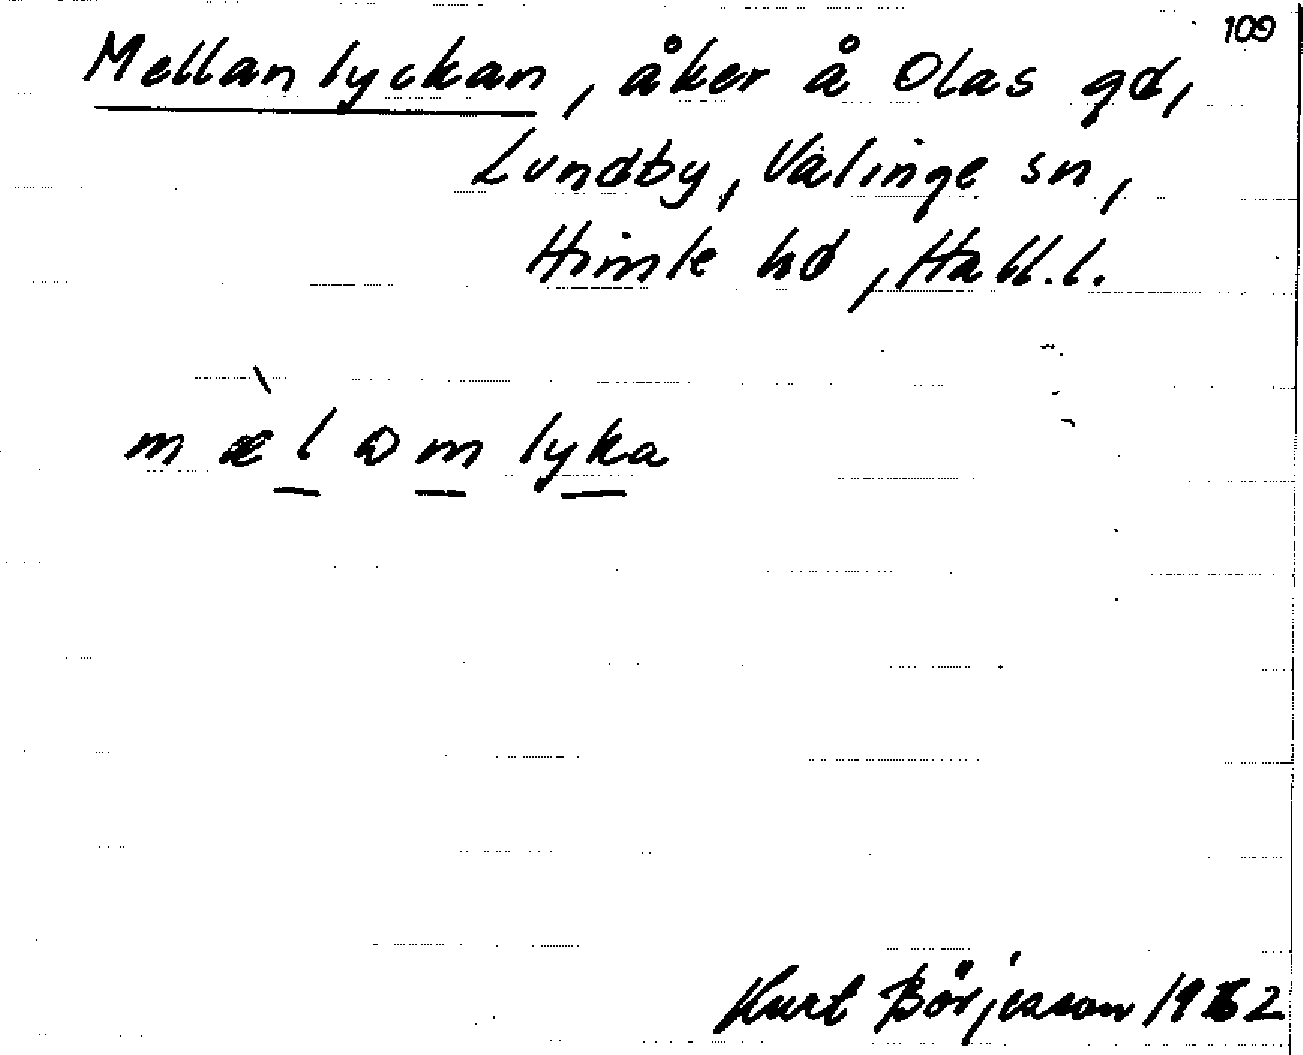 109
Mellanlyckan, åker å Olas gd,
Lundby, Valinge sn,
Himle hd, Hall.l.
mæ̀lɷmlyka
Kurt Börjesson 1962